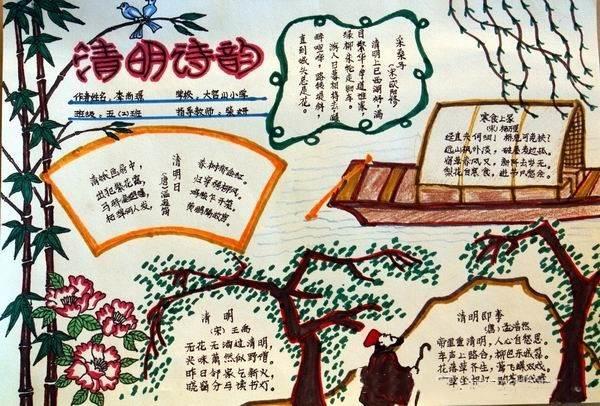 清明诗韵
作者姓名：李尚琪 学校：大召山小学
班级：五(2)班 指导教师：柴妍
采桑子
(宋)欧阳修
清明上巳西湖好，满
目繁华。争道谁家，
绿柳朱轮走钿车。
游人日暮相将去，醒
醉喧哗。路转堤斜，
直到城头总是花。
寒食上冢
(宋)杨万里
径直夫何细！桥危可免扶？
远山枫外淡，破屋麦边孤。
宿草春风又，新阡去岁无。
梨花自寒食，进节只愁余。
清明日
(唐)温庭筠
清娥画扇中，
出犯繁花露，
马骄偏避幰，
柘弹何人发，
春树郁金红。
归穿弱柳风。
鸡骇乍开笼。
黄鹂隔故宫。
清明
(宋)王禹
无花无酒过清明，
兴味萧然似野僧。
昨日邻家乞新火，
晓窗分与读书灯。
清明即事
(唐)孟浩然
帝里重清明，人心自愁思。
车声上路合，柳色东城翠。
花落草齐生，莺飞蝶双戏。
空堂坐相忆，